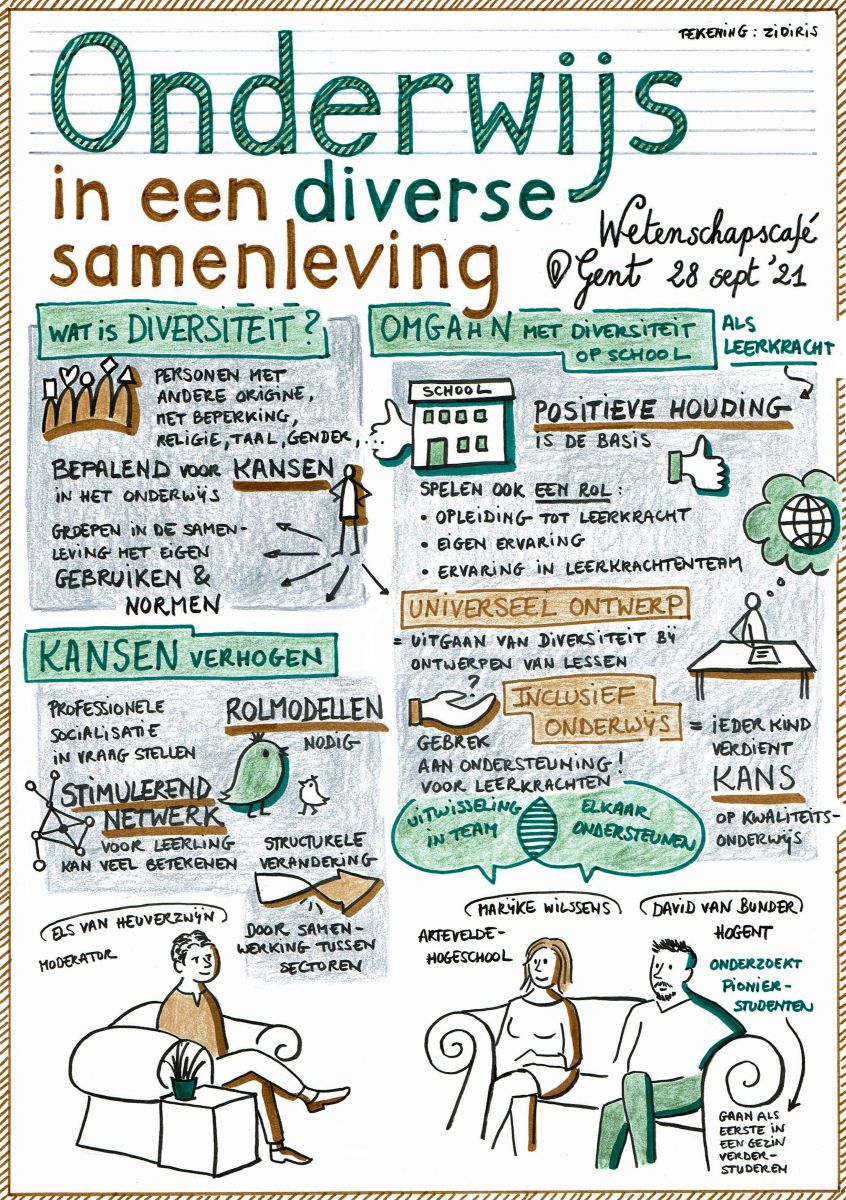 TEKENING: ZIDIRIS
Onderwijs
in een diverse
samenleving
Wetenschapscafé
Gent 28 sept '21
WAT IS DIVERSITEIT?
PERSONEN MET
ANDERE ORIGINE,
MET BEPERKING,
RELIGIE, TAAL, GENDER,...
BEPALEND VOOR KANSEN
IN HET ONDERWIJS
GROEPEN IN DE SAMEN-
LEVING MET EIGEN
GEBRUIKEN &
NORMEN
OMGAHN MET DIVERSITEIT
OP SCHOOL
ALS
LEERKRACHT
SCHOOL
POSITIEVE HOUDING
IS DE BASIS
SPELEN OOK EEN ROL:
• OPLEIDING TOT LEERKRACHT
• EIGEN ERVARING
• ERVARING IN LEERKRACHTENTEAM
UNIVERSEEL ONTWERP
= UITGAAN VAN DIVERSITEIT BIJ
ONTWERPEN VAN LESSEN
KANSEN VERHOGEN
PROFESSIONELE
SOCIALISATIE
IN VRAAG STELLEN
ROLMODELLEN
NODIG
STIMULEREND
NETWERK
VOOR LEERLING
KAN VEEL BETEKENEN
STRUCTURELE
VERANDERING
DOOR SAMEN-
WERKING TUSSEN
SECTOREN
?
GEBREK
AAN ONDERSTEUNING!
VOOR LEERKRACHTEN
INCLUSIEF
ONDERWIJS
= IEDER KIND
VERDIENT
KANS
OP KWALITEITS-
ONDERWIJS
UITWISSELING
IN TEAM
ELKAAR
ONDERSTEUNEN
ELS VAN HEUVERZWIJN
MODERATOR
MARIJKE WILSSENS
ARTEVELDE-
HOGESCHOOL
DAVID VAN BUNDER
HOGENT
ONDERZOEKT
PIONIER-
STUDENTEN
GAAN ALS
EERSTE IN
EEN GEZIN
VERDER-
STUDEREN